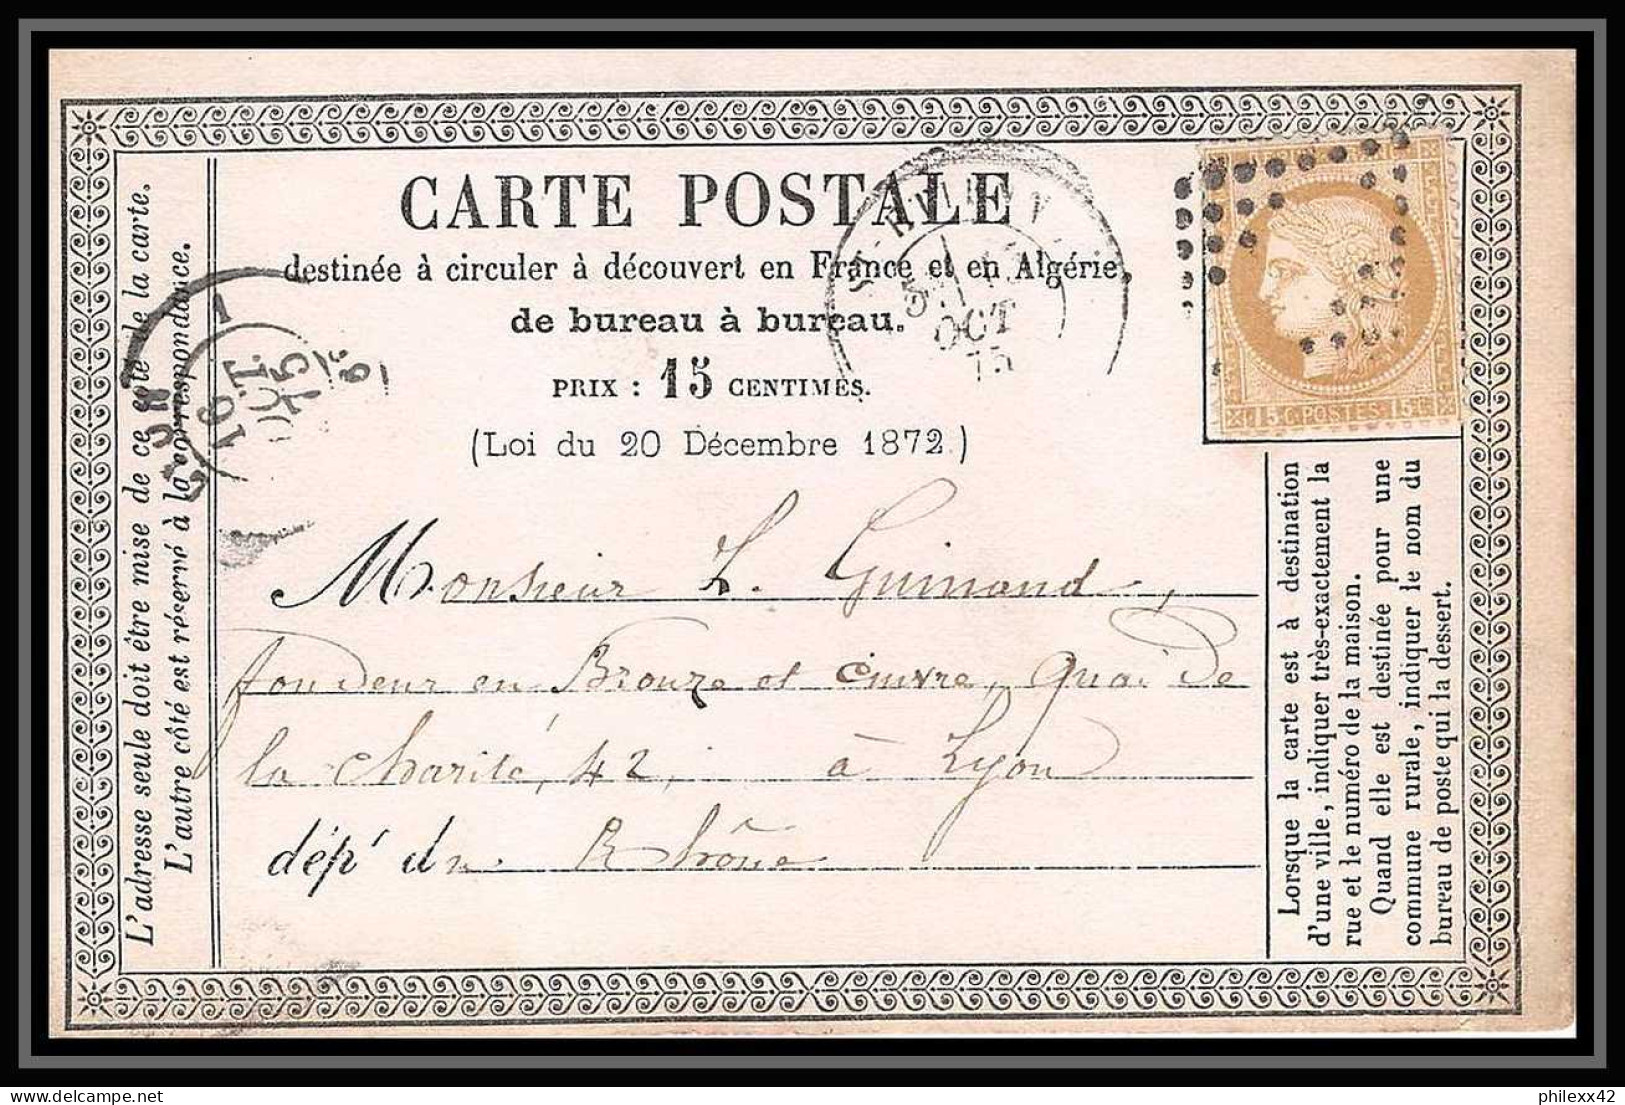 CARTE POSTALE
destinée à circuler à découvert en France et en Algérie,
de bureau à bureau.
PRIX : 15 CENTIMES.
(Loi du 20 Décembre 1872.)
L'adresse seule doit être mise de ce côté de la carte.
L'autre côté est réservé à la correspondance.
OCT
75
LYON
1
16
OCT.
75
15 C. POSTES. 15 C.
Monsieur L. Guimand,
fondeur en Bronze et cuivre, Quai De
la charité, 42, à Lyon
dép<sup>t</sup> du Rhône
Lorsque la carte est à destination
d'une ville, indiquer très-exactement la
rue et le numéro de la maison.
Quand elle est destinée pour une
commune rurale, indiquer le nom du
bureau de poste qui la dessert.
www.delcampe.net
philexx42